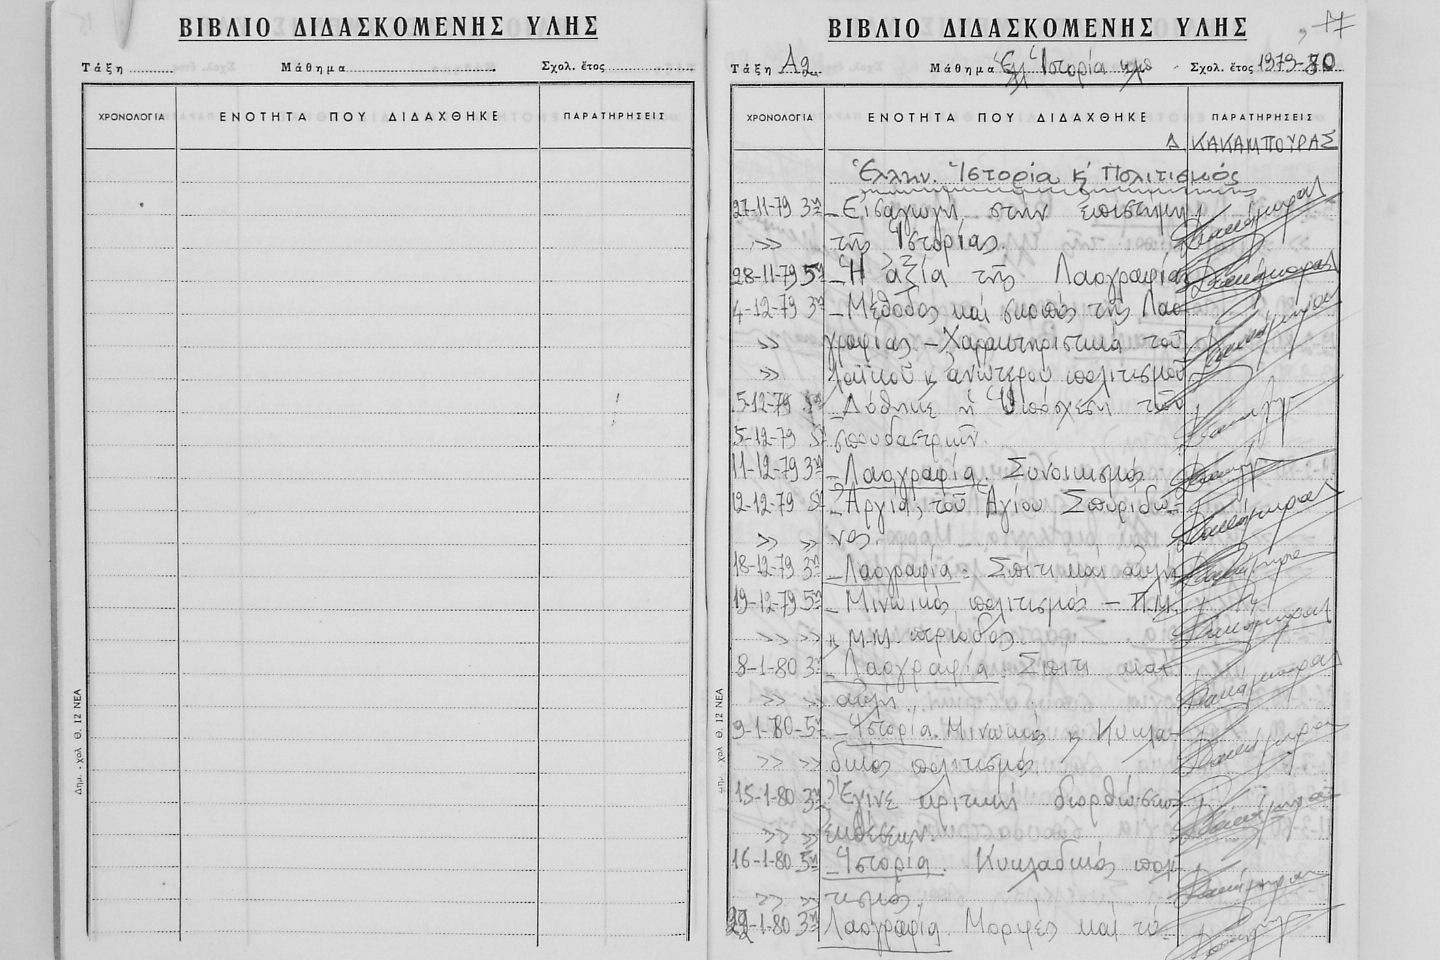 ΒΙΒΛΙΟ ΔΙΔΑΣΚΟΜΕΝΗΣ ΥΛΗΣ
Τάξη Μάθημα Σχολ. ἔτος
ΧΡΟΝΟΛΟΓΙΑ ΕΝΟΤΗΤΑ ΠΟΥ ΔΙΔΑΧΘΗΚΕ ΠΑΡΑΤΗΡΗΣΕΙΣ
Δημ. - χολ Θ. 12 ΝΕΑ
17
ΒΙΒΛΙΟ ΔΙΔΑΣΚΟΜΕΝΗΣ ΥΛΗΣ
Τάξη Α2 Μάθημα Ἑλ Ἱστορία Σχολ. ἔτος 1979-80
ΧΡΟΝΟΛΟΓΙΑ ΕΝΟΤΗΤΑ ΠΟΥ ΔΙΔΑΧΘΗΚΕ ΠΑΡΑΤΗΡΗΣΕΙΣ
Δ. ΚΑΚΑΜΠΟΥΡΑΣ
Ἑλλην. Ἱστορία κ Πολιτισμός
27-11-79 3η - Εἰσαγωγή στήν ἐπιστήμη
»» τῆς Ἱστορίας.
28-11-79 5η - Ἡ ἀξία τῆς Λαογραφίας
4-12-79 3η - Μέθοδος καί σκοπός τῆς Λαο-
»» γραφίας. - Χαρακτηριστικά τοῦ
»» λαϊκοῦ κ ἀνωτέρου πολιτισμοῦ
5-12-79 5η - Δόθηκε ἡ ὑπόσχεση τῶν
5-12-79 5η σπουδαστριῶν.
11-12-79 3η - Λαογραφία. Συνοικισμός
12-12-79 5η - Ἀργία τοῦ Ἁγίου Σπυρίδω-
»» »» νος.
18-12-79 3η - Λαογραφία - Σπίτι καί αὐλή
19-12-79 5η - Μινωικός πολιτισμός - Π.Μ.
»» »» κ Μ.Μ. περίοδος.
8-1-80 3η - Λαογραφία. Σπίτι καί
»» »» αὐλή.
9-1-80 5η - Ἱστορία. Μινωικός κ Κυκλα-
»» »» δικός πολιτισμός.
15-1-80 3η - Ἔγινε κριτική διορθώσεως
»» »» ἐκθέσεων.
16-1-80 5η - Ἱστορία. Κυκλαδικός πολι-
»» »» τισμός.
22-1-80 3η Λαογραφία. Μορφές καί τύ-
χολ Θ. 12 ΝΕΑ